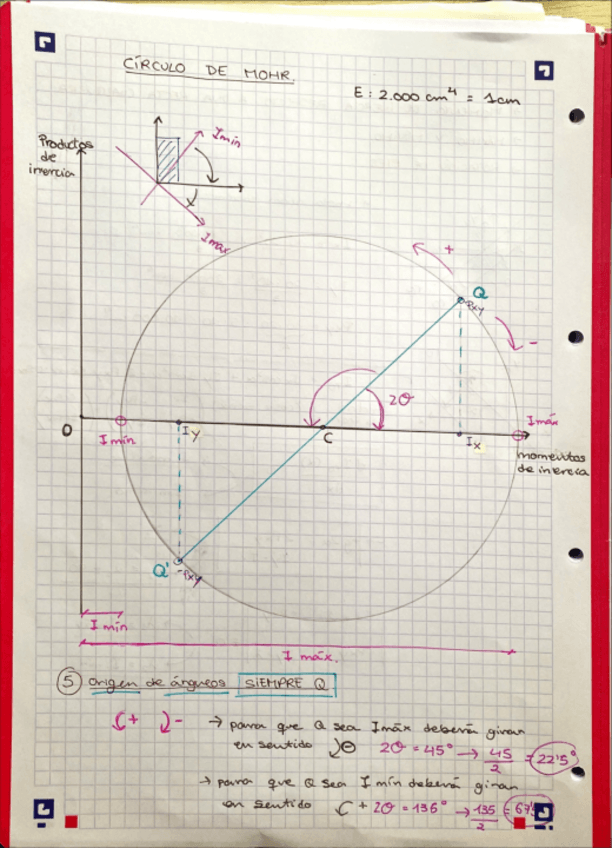 CÍRCULO DE MOHR.
E : 2.000 cm⁴ = 1cm
Productos
de
inercia
Imín
Imax
+
Q
Pxy
-
2θ
O
I mín
Iy
C
Ix
I máx
momentos
de inercia
Q'
-Pxy
I mín
I máx.
5 origen de ángulos SIEMPRE Q
+ - → para que Q sea Imáx deberá girar
en sentido ⊖ 2θ = 45° → 45/2 = 22'5°
→ para que Q sea I mín deberá girar
en sentido + 2θ = 135° → 135/2 =